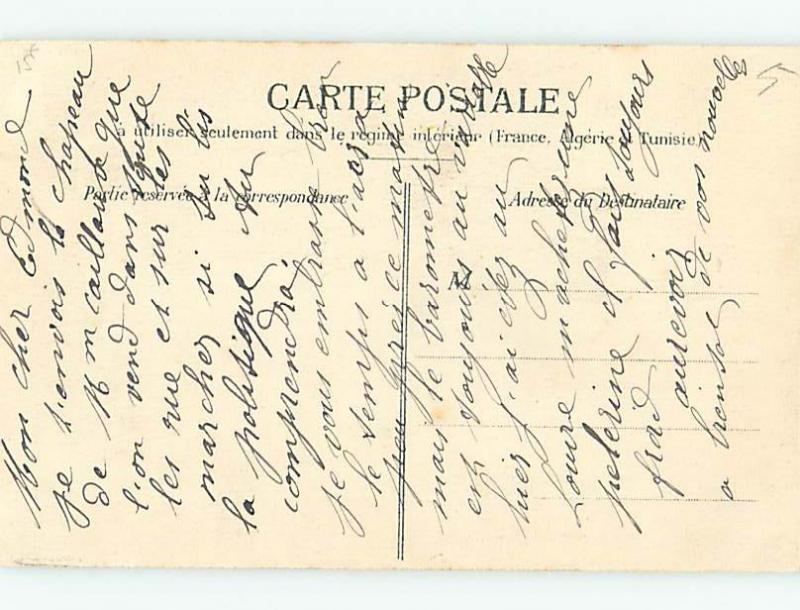 CARTE POSTALE
à utiliser seulement dans le régime intérieur (France, Algérie & Tunisie)
Partie réservée à la correspondance
Adresse du Destinataire
M
Mon cher Edmond
je t'envois le chapeau
de M mcaillaux que
l'on vend dans toute
les rue et sur les
marcher si tu lis
la politique tu
comprendra.
je vous embrasse bien
le temps a l'air
peu pres ce matin
mais le barometre
est toujours au variable
hier j'ai été au
Louvre m'acheter une
pelerine il fait toujours
froid
aurevoir
a bientot de vos nouvelle